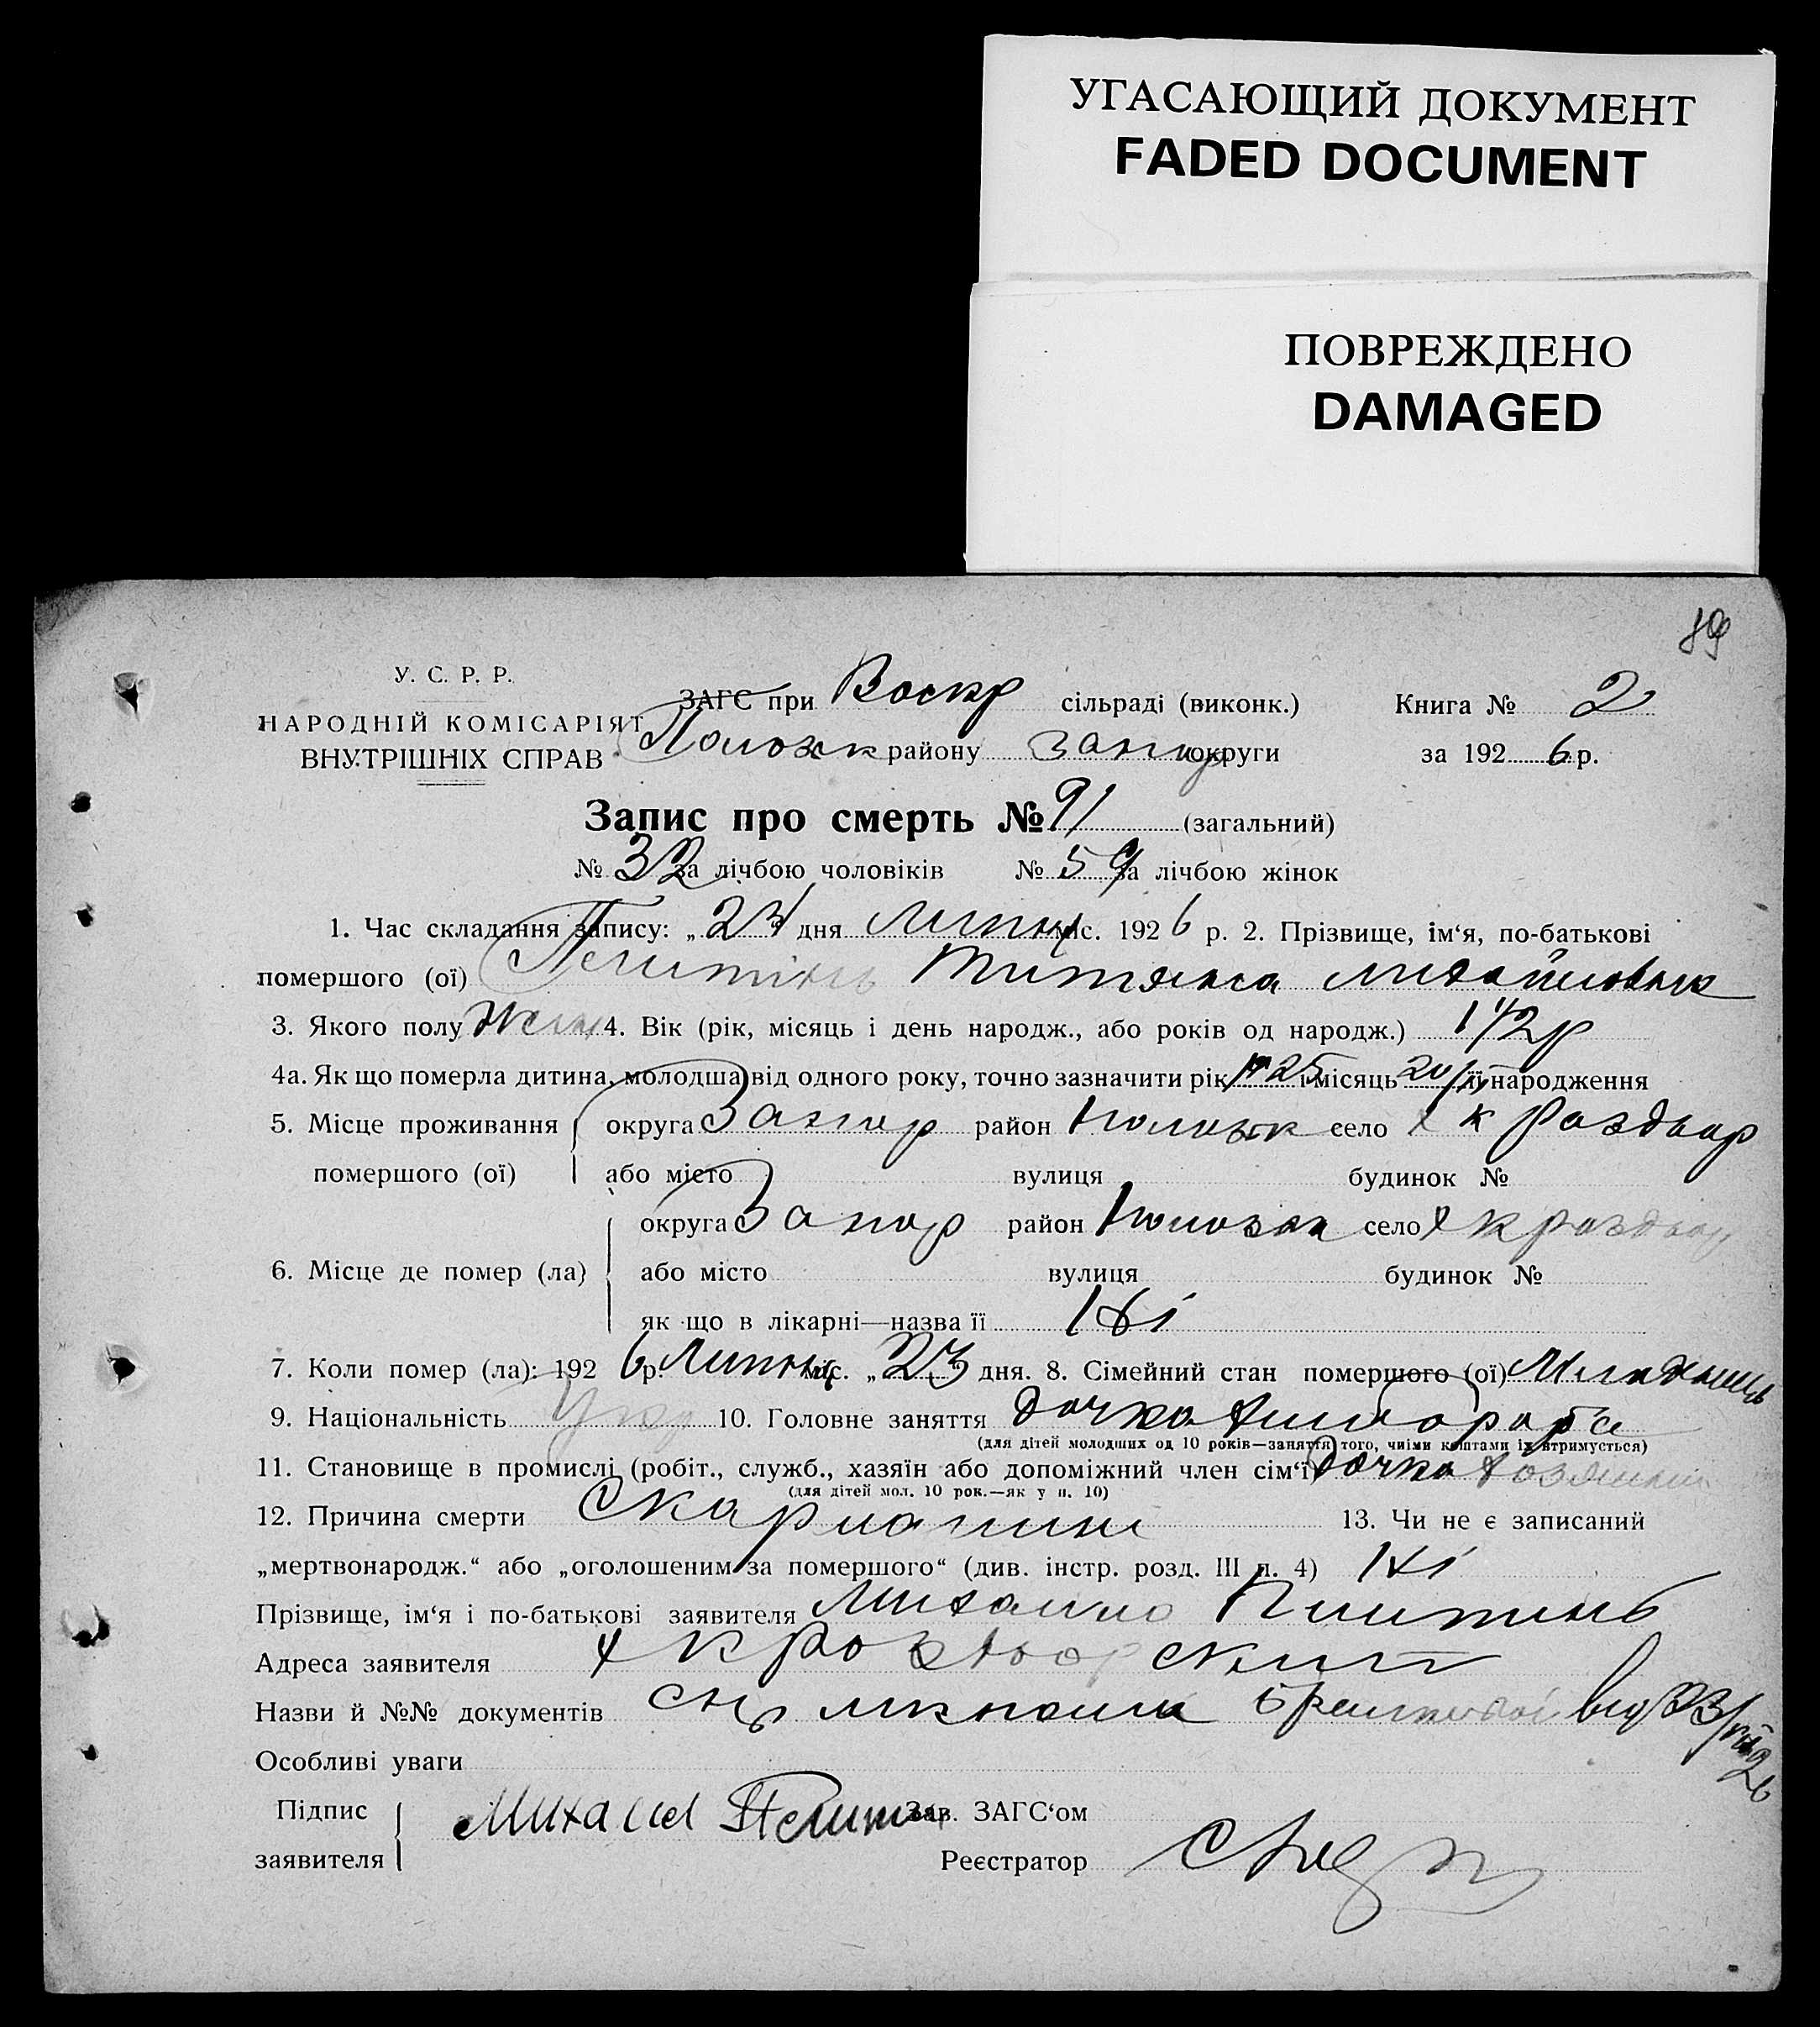 УГАСАЮЩИЙ ДОКУМЕНТ
FADED DOCUMENT
ПОВРЕЖДЕНО
DAMAGED
89
У. С. Р. Р.
НАРОДНІЙ КОМІСАРІЯТ
ВНУТРІШНІХ СПРАВ
ЗАГС при Воскр сільраді (виконк.) Книга № 2
Полозк району Запор округи за 1926 р.
Запис про смерть № 91 (загальний)
№ 32 за лічбою чоловіків № 59 за лічбою жінок
1. Час складання запису: „ 24 дня Липня міс. 1926 р. 2. Прізвище, ім‘я, по-батькові
помершого (ої) Титяна Михайловна
3. Якого полу Жин 4. Вік (рік, місяць і день народж., або років од народж.) 1 1/2 р
4а. Як що померла дитина, молодша від одного року, точно зазначити рік 1925 і місяць її народження
5. Місце проживання помершого (ої) округа Запор район Полозк село х к Роздвор
або місто вулиця будинок №
6. Місце де помер (ла) округа Запор район Полозк село х к роздвор
або місто вулиця будинок №
як що в лікарні—назва її Ні
7. Коли помер (ла): 1926 р. Липня міс. „ 23 дня. 8. Сімейний стан помершого (ої)
9. Національність Укр 10. Головне заняття дочка хлибороба
(для дітей молодших од 10 років—заняття того, чиїми коштами їх втримується)
11. Становище в промислі (робіт., служб., хазяїн або допоміжний член сім‘ї) дочка хозяина
(для дітей мол. 10 рок.—як у п. 10)
12. Причина смерти Скарлатини 13. Чи не є записаний
„мертвонародж.“ або „оголошеним за помершого“ (див. інстр. розд. III п. 4) Ні
Прізвище, ім‘я і по-батькові заявителя Михайло
Адреса заявителя х к Роздворский
Назви й №№ документів від 23/VII 26
Особливі уваги
Підпис заявителя Михаил Зав. ЗАГС‘ом
Реєстратор